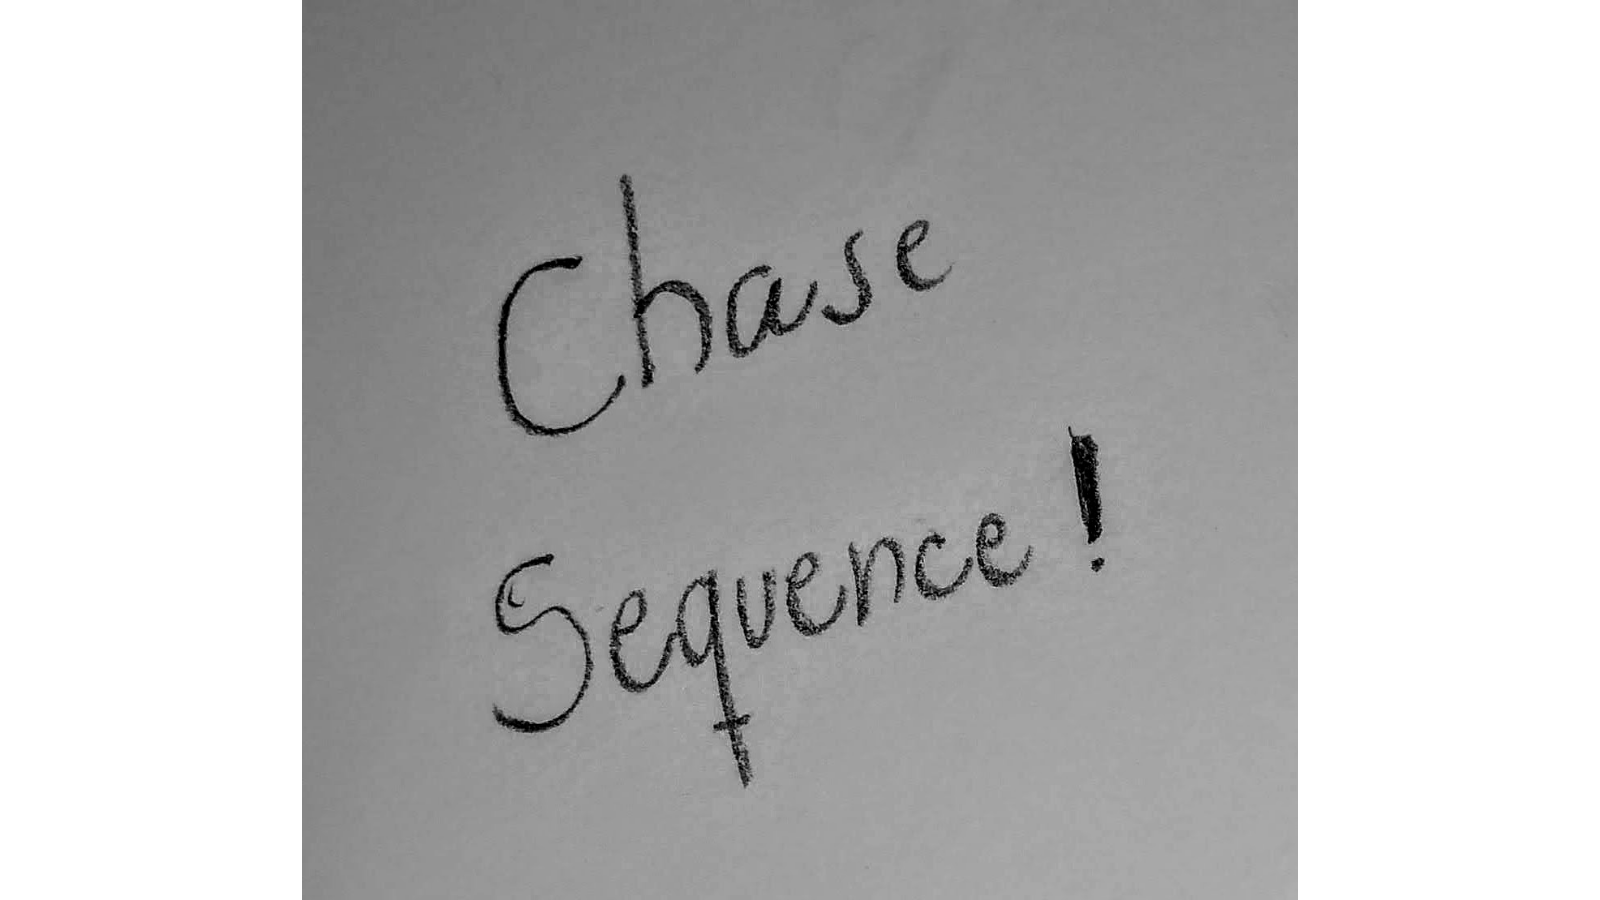 Chase
Sequence!